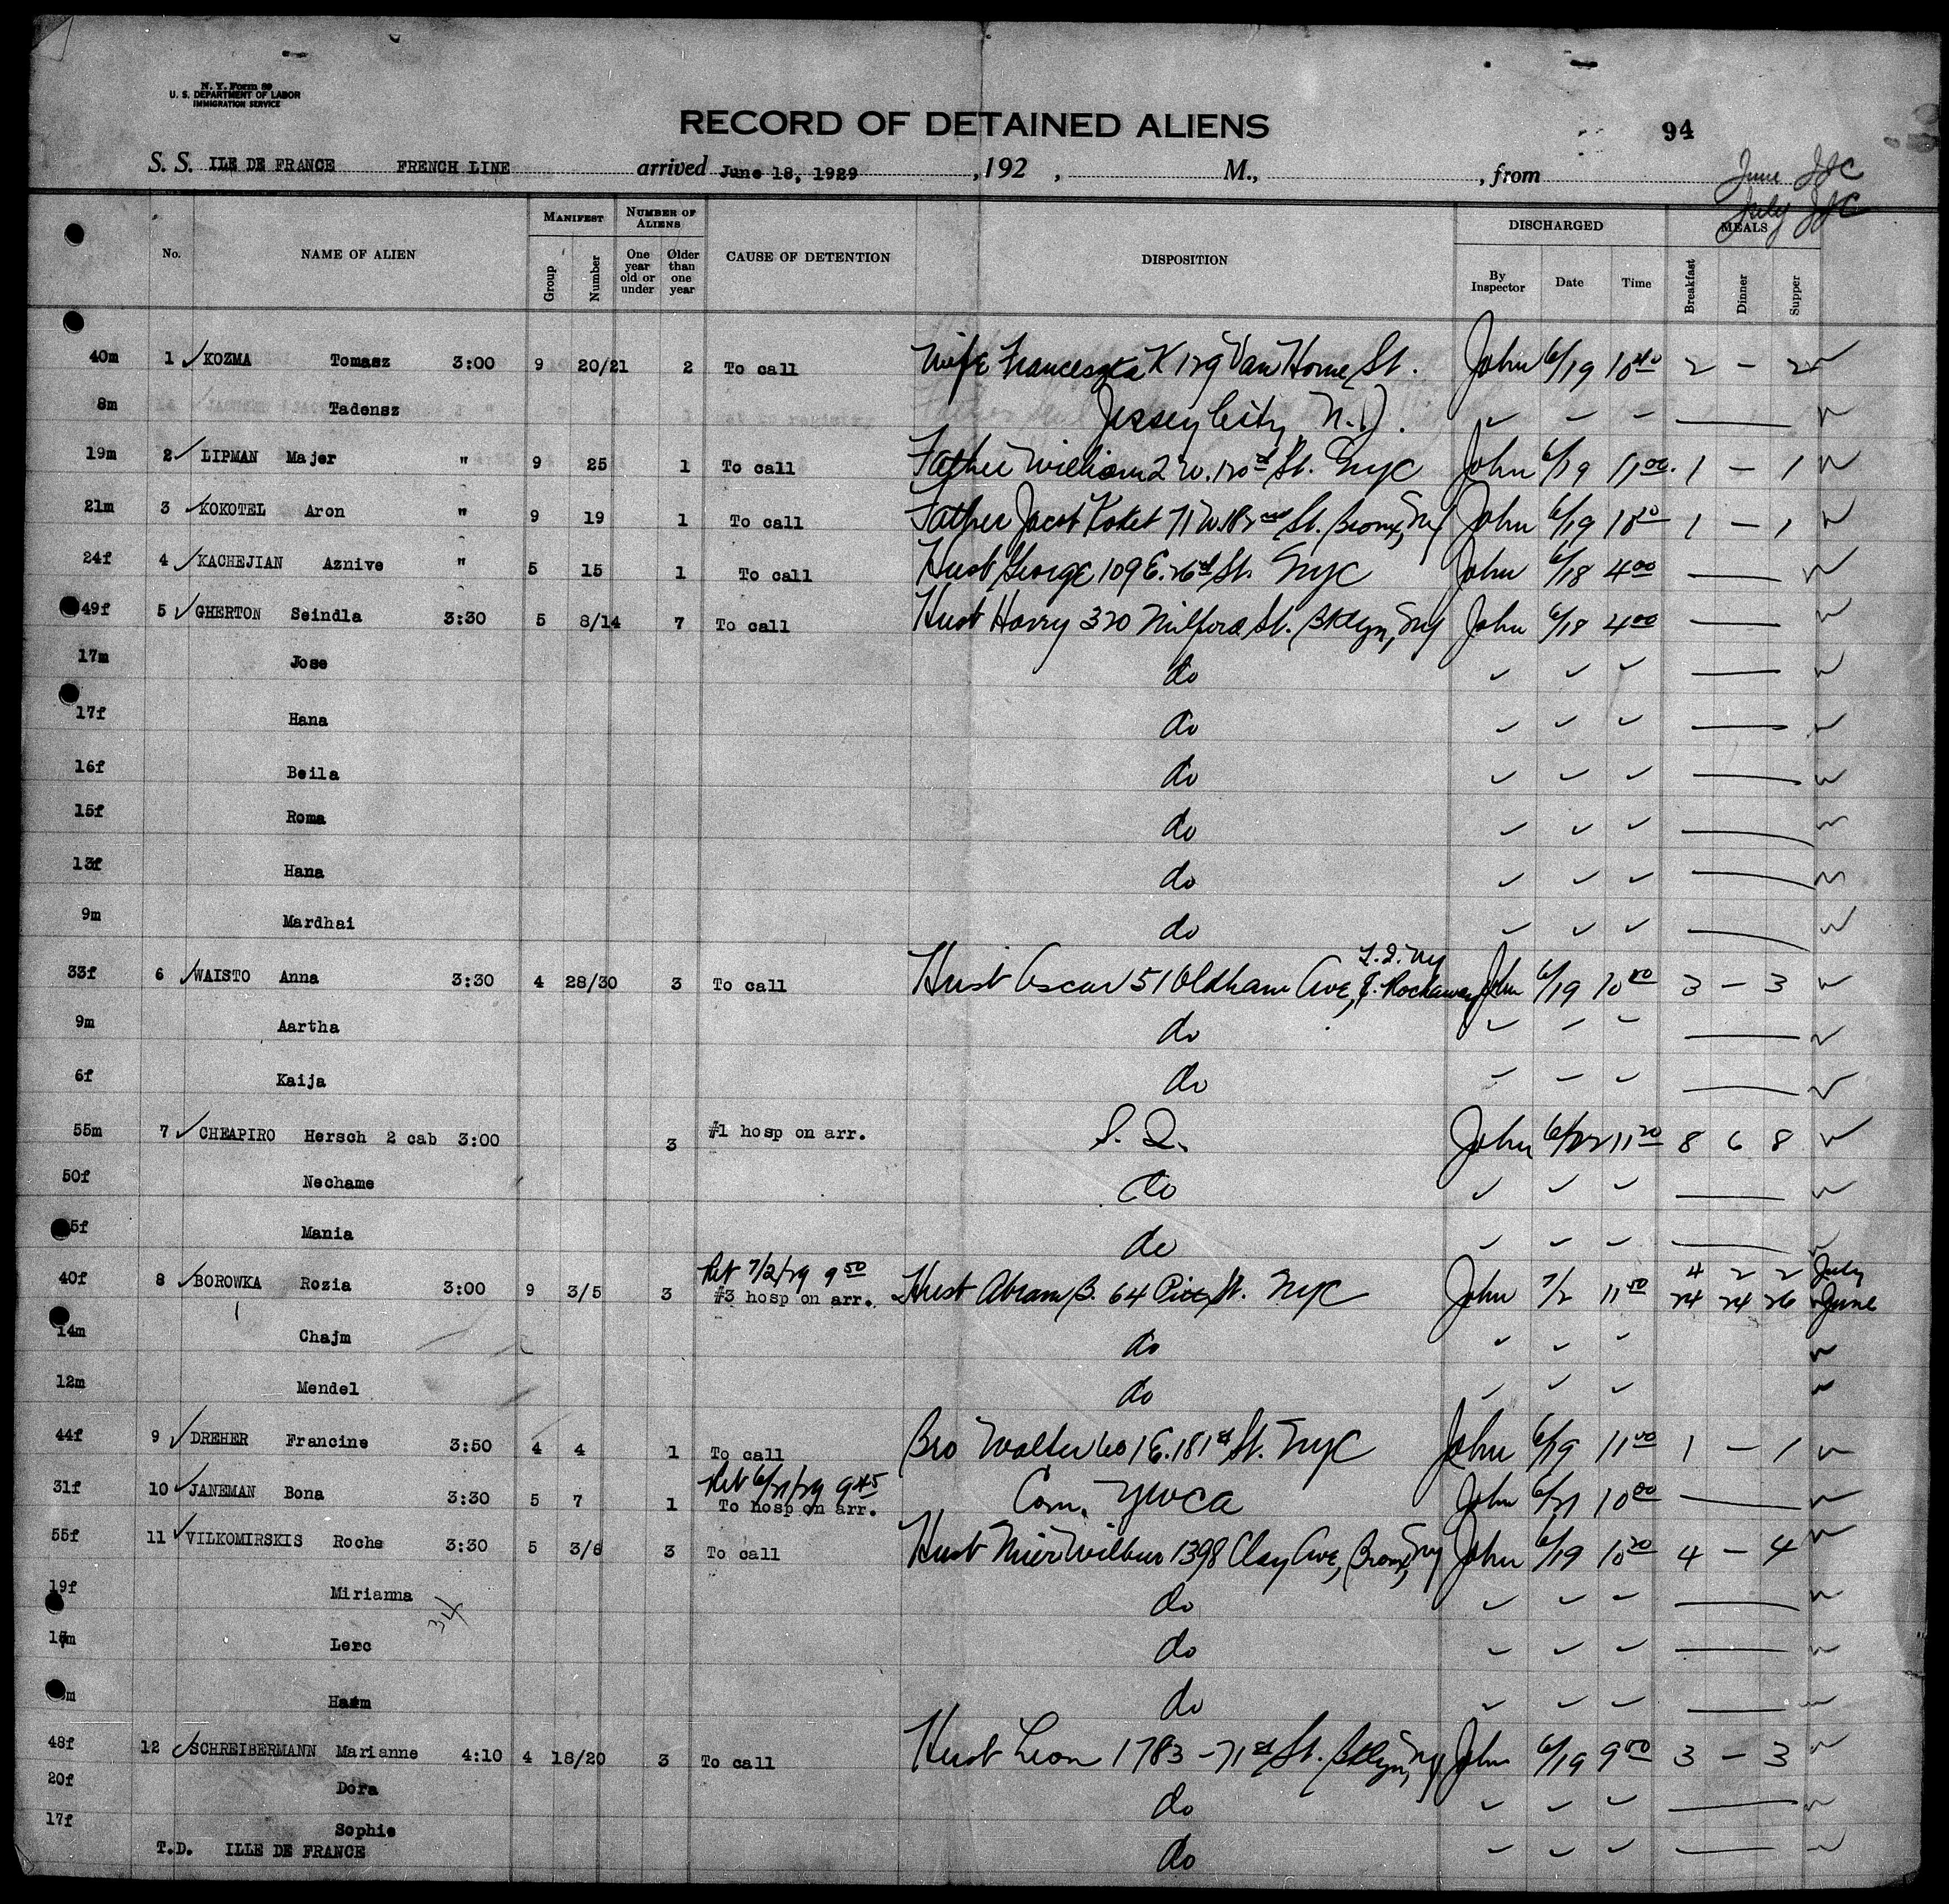 N. Y. Form 89
U. S. DEPARTMENT OF LABOR
IMMIGRATION SERVICE
RECORD OF DETAINED ALIENS
94
S. S. ILE DE FRANCE FRENCH LINE arrived June 18, 1929 , 192 , M., , from
June
July
No. NAME OF ALIEN MANIFEST NUMBER OF ALIENS CAUSE OF DETENTION DISPOSITION DISCHARGED MEALS
Group Number One year old or under Older than one year By Inspector Date Time Breakfast Dinner Supper
40m 1 ✓ KOZMA Tomasz 3:00 9 20/21 2 To call Wife Franceszka K 129 Van Horne St. John 6/19 10 40 2 – 2 ✓
8m Tadensz Jersey City N.J. ✓ – – — ✓
19m 2 ✓ LIPMAN Majer " 9 25 1 To call Father William 2 W. 120th St. NYC John 6/19 11 00 1 – 1 ✓
21m 3 ✓ KOKOTEL Aron " 9 19 1 To call Father Jacob Kotet 71 W. 182nd St. Bronx, NY John 6/19 1 – 1 ✓
24f 4 ✓ KACHEJIAN Aznive " 5 15 1 To call Husb George 109 E. 26th St. NYC John 6/18 4 00 — ✓
49f 5 ✓ GHERTON Seindla 3:30 5 8/14 7 To call Husb Harry 320 Milford St. Bklyn, NY John 6/18 4 00 — ✓
17m Jose do ✓ ✓ ✓ — ✓
17f Hana do ✓ ✓ ✓ — ✓
16f Beila do ✓ ✓ ✓ — ✓
15f Roma do ✓ ✓ ✓ — ✓
13f Hana do ✓ ✓ ✓ — ✓
9m Mardhai do ✓ ✓ ✓ — ✓
L.I. NY
33f 6 ✓ WAISTO Anna 3:30 4 28/30 3 To call Husb Oscar 51 Oldham Ave, E. Rockaway John 6/19 10 00 3 – 3 ✓
9m Aartha do ✓ – – — ✓
6f Kaija do – – – — ✓
55m 7 ✓ CHEAPIRO Hersch 2 cab 3:00 3 #1 hosp on arr. S. I. John 6/22 11 20 8 6 8 ✓
50f Nechame do ✓ ✓ ✓ — ✓
5f Mania do ✓ ✓ ✓ — ✓
Ret 7/2/29 9 50 4 2 2 July
40f 8 ✓ BOROWKA Rozia 3:00 9 3/5 3 #3 hosp on arr. Husb Abram B. 64 Pitt St. NYC John 7/2 11 50 24 24 26 June
14m Chajm do ✓ ✓ ✓ ✓
12m Mendel do ✓ ✓ ✓ ✓
44f 9 ✓ DREHER Francine 3:50 4 4 1 To call Bro Walter 601 E. 181st St. NYC John 6/19 11 00 1 – 1 ✓
Ret 6/21/29 9 45
31f 10 ✓ JANEMAN Bona 3:30 5 7 1 To hosp on arr. Com. YWCA John 6/21 10 00 — ✓
55f 11 ✓ VILKOMIRSKIS Roche 3:30 5 3/6 3 To call Husb Mier Wilbur 1398 Clay Ave, Bronx, NY John 6/19 10 20 4 – 4 ✓
19f Mirianna do ✓ ✓ ✓ — ✓
34
Lerc do ✓ ✓ ✓ — ✓
m Haam do ✓ ✓ ✓ — ✓
48f 12 ✓ SCHREIBERMANN Marianne 4:10 4 18/20 3 To call Husb Leon 1783 - 71st St. Bklyn, NY John 6/19 9 00 3 – 3 ✓
20f Dora do ✓ ✓ ✓ — ✓
17f Sophie do ✓ ✓ ✓ — ✓
T.D. ILLE DE FRANCE